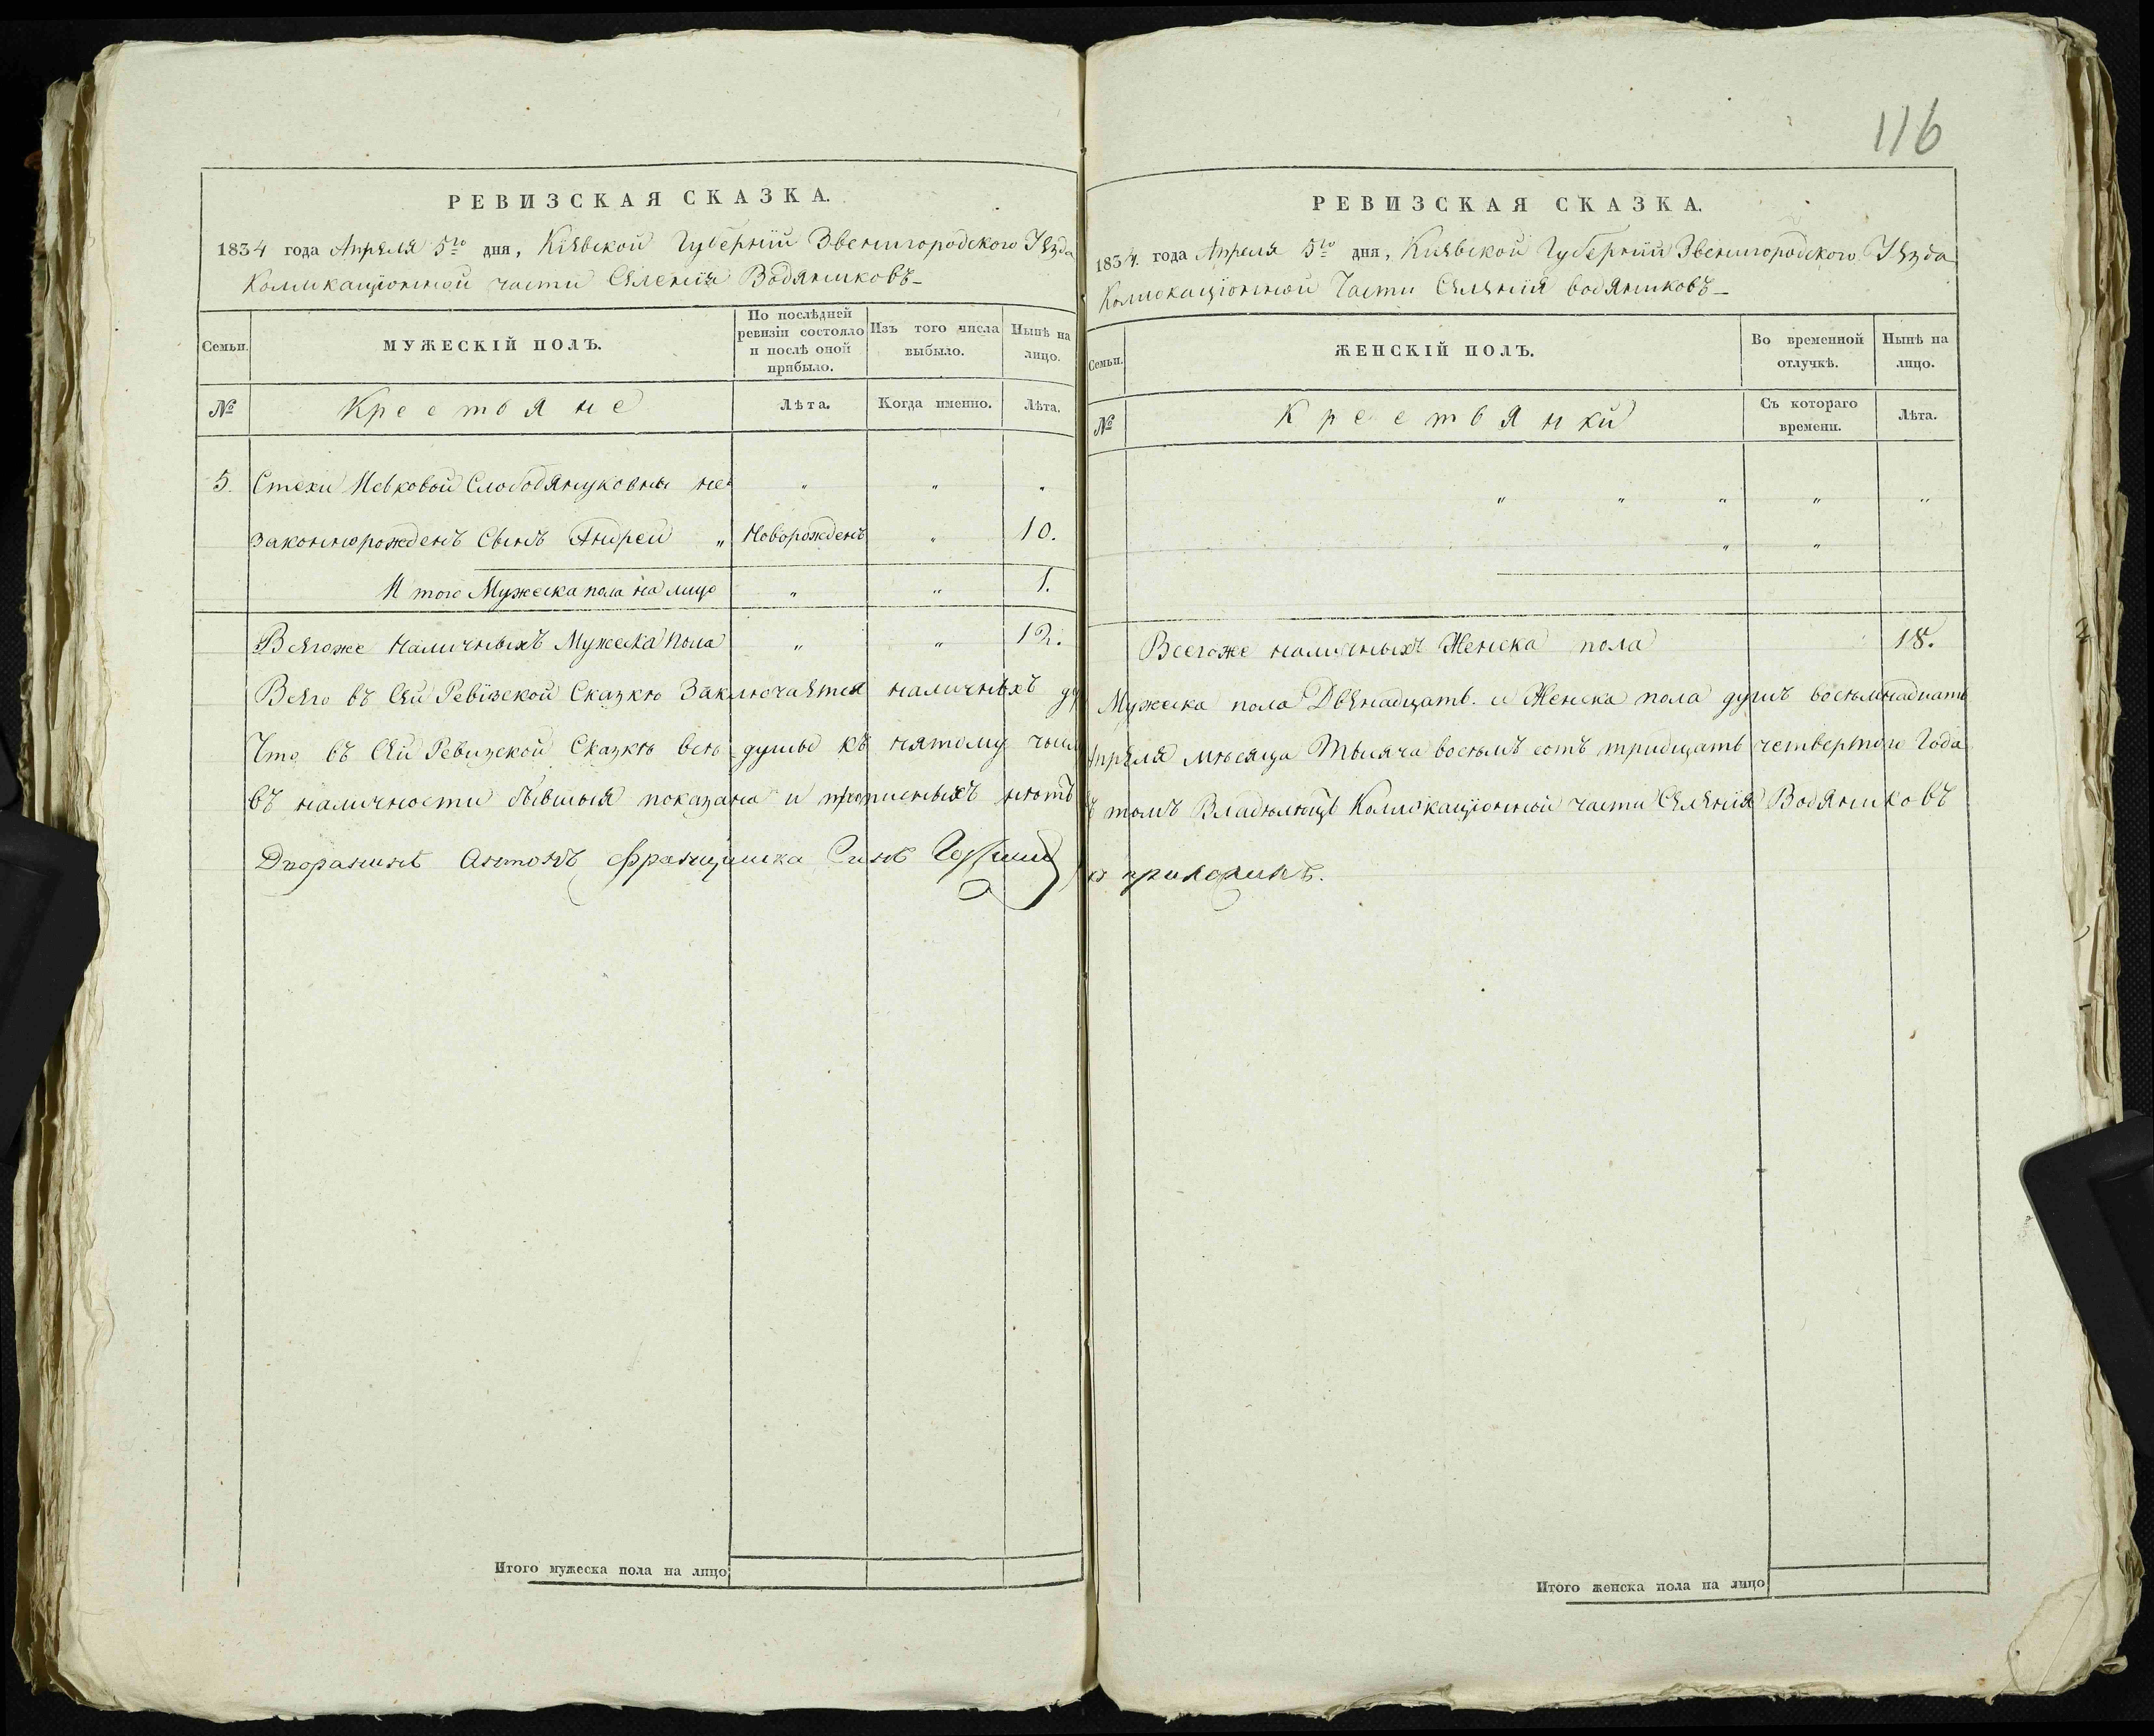 РЕВИЗСКАЯ СКАЗКА.
1834 года Апреля 5го дня, Кіевской Губерніи Звенигородского Уезда
Коллокаціонной части Селенія Водяниковъ
Семьи.
МУЖЕСКІЙ ПОЛЪ.
По послѣдней ревизіи состояло и послѣ оной прибыло.
Изъ того числа выбыло.
Нынѣ на лицо.
№
Крестьяне
Лѣта.
Когда именно.
Лѣта.
5. Стехи Левковой Слободянуковны не " " "
законнорожденъ Сынъ Андрей " Новорожденъ " 10.
И того Мужеска пола на лицо " " 1.
Всегоже наличныхъ Мужеска пола " " 12.
Всего въ Сей Ревизской Сказкѣ Заключается наличныхъ ду
Что въ Сей Ревизской Сказкѣ всѣ душы къ пятому числ
въ наличности бывшыя показана и прописныхъ нѣтъ
Дворанинъ Антонъ Францишка Синъ
Итого мужеска пола на лицо
116
РЕВИЗСКАЯ СКАЗКА.
1834. года Апреля 5го дня, Киевской Губерніи Звенигородского Уезда
Коллокаціонной Части Селенія Водяниковъ
Семьи.
ЖЕНСКІЙ ПОЛЪ.
Во временной отлучкѣ.
Нынѣ на лицо.
№
Крестьянки
Съ котораго времени.
Лѣта.
" " " " "
" "
Всегоже наличныхъ Женска пола 18.
Мужеска пола Двенадцать. и Женска пола душъ восемнадцать
Апреля мѣсяца Тысяча восемъ сотъ тридцать четвертого Года
въ томъ Владѣлецъ Коллокаціонной части Селенія Водяниковъ
Итого женска пола на лицо